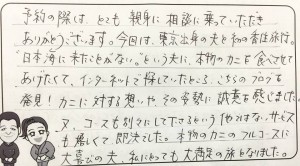 予約の際は、とても親身に相談に乗っていただき
ありがとうございます。今回は、東京出身の夫と初の香住旅行。
"日本海に来たことがない"という夫に、本物のカニを食べさせて
あげたくて、インターネットで探していたところ、こちらのブログを
発見!カニに対する想いや、その姿勢に誠実を感じました。
又、コースも別々にして下さるという他ではないサービス
も嬉しくて即決でした。本物のカニのフルコースに
大喜びの夫、私にとっても大満足の旅となりました。